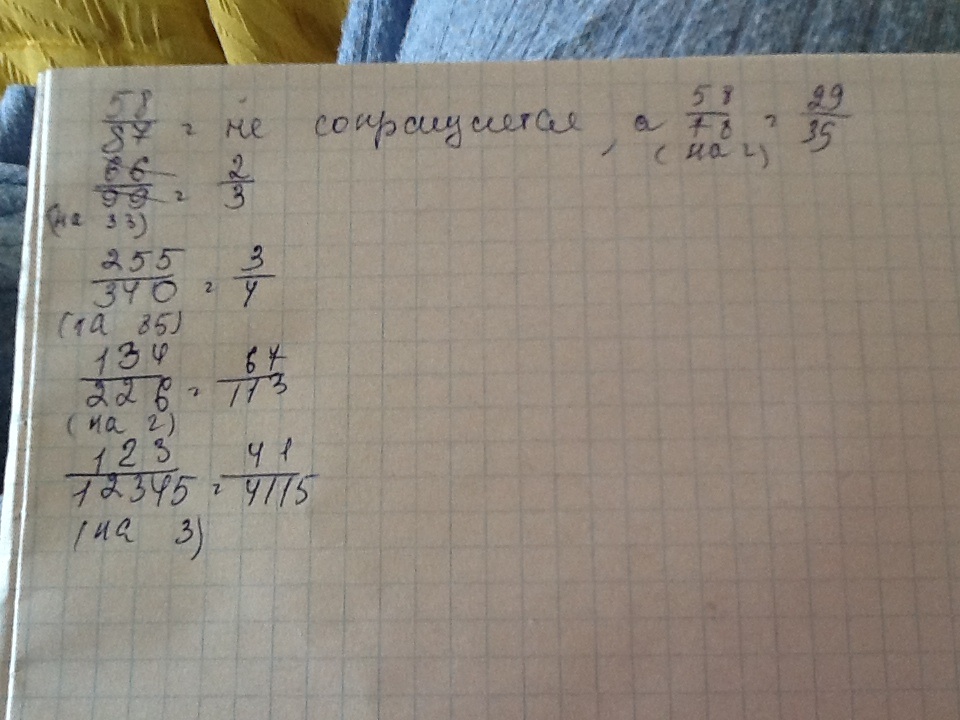 58/87 = не сокращается, а 58/78 = 29/35
(на 2)
66/99 = 2/3
(на 33)
255/340 = 3/4
(на 85)
134/226 = 67/113
(на 2)
123/12345 = 41/4115
(на 3)